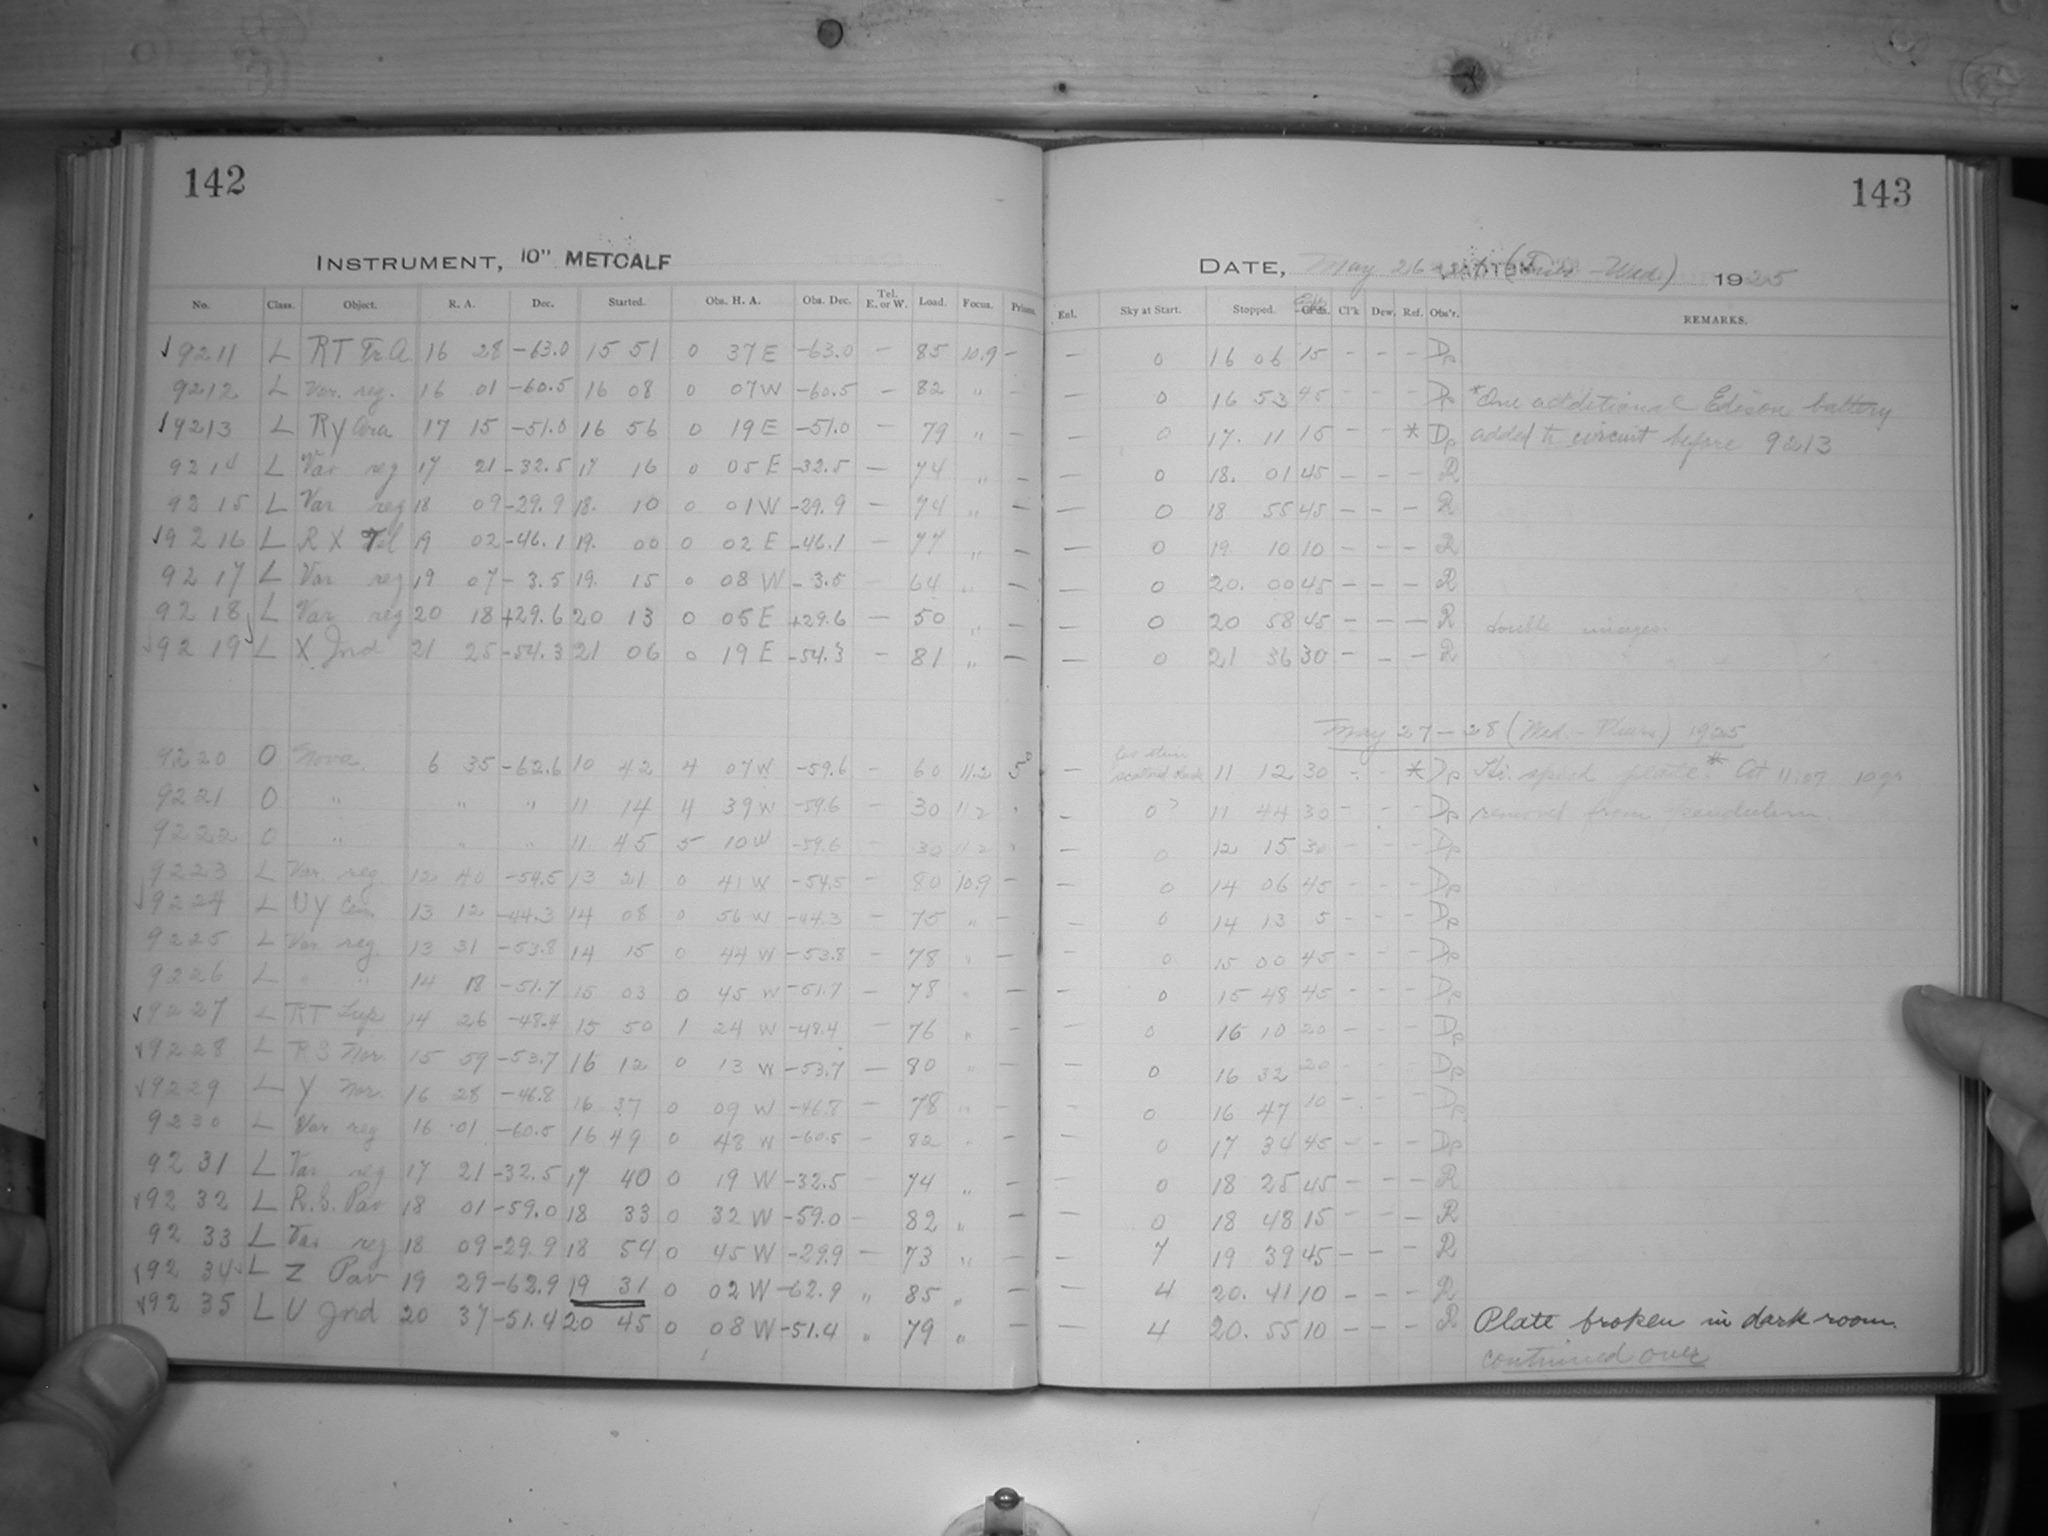 142
INSTRUMENT, 10" METCALF
No. Class. Object. R. A. Dec. Started. Obs. H. A. Obs. Dec. Tel. E. or W. Load. Focus. Prisms.
9211 L RT Tr.A 16 28 -63.0 15 51 0 37 E -63.0 - 85 10.9 -
9212 L Var. reg. 16 01 -60.5 16 08 0 07 W -60.5 - 82 " -
9213 L Ry Ara 17 15 -51.0 16 56 0 19 E -51.0 - 79 " -
9214 L Var reg 17 21 -32.5 17 16 0 05 E -32.5 - 74 " -
9215 L Var reg 18 09 -29.9 18. 10 0 01 W -29.9 - 74 " -
9216 L R X Tel 19 02 -46.1 19. 00 0 02 E -46.1 - 77 " -
9217 L Var reg 19 07 -3.5 19. 15 0 08 W -3.5 - 64 " -
9218 L Var reg 20 18 +29.6 20 13 0 05 E +29.6 - 50 " -
9219 L X Ind 21 25 -54.3 21 06 0 19 E -54.3 - 81 " -
9220 O Nova. 6 35 -62.6 10 42 4 07 W -59.6 - 60 11.2
9221 O " " " 11 14 4 39 W -59.6 - 30 11.2 "
9222 O " " " 11 45 5 10 W -59.6 - 30 11.2 "
9223 L Var. reg. 12 40 -54.5 13 21 0 41 W -54.5 - 80 10.9 -
9224 L UY Cen. 13 12 -44.3 14 08 0 56 W -44.3 - 75 " -
9225 L Var. reg. 13 31 -53.8 14 15 0 44 W -53.8 - 78 " -
9226 L " " 14 18 -51.7 15 03 0 45 W -51.7 - 78 " -
9227 L RT Lup. 14 26 -48.4 15 50 1 24 W -48.4 - 76 " -
9228 L RS Nor. 15 59 -53.7 16 12 0 13 W -53.7 - 80 " -
9229 L Y Nor. 16 28 -46.8 16 37 0 09 W -46.8 - 78 " -
9230 L Var reg 16 01 -60.5 16 49 0 48 W -60.5 - 82 " -
9231 L Var reg 17 21 -32.5 17 40 0 19 W -32.5 - 74 " -
9232 L R.S. Pav 18 01 -59.0 18 33 0 32 W -59.0 - 82 " -
9233 L Var reg 18 09 -29.9 18 54 0 45 W -29.9 - 73 " -
9234 L Z Pav 19 29 -62.9 19 31 0 02 W -62.9 " 85 " -
9235 L U Ind 20 37 -51.4 20 45 0 08 W -51.4 " 79 " -
143
DATE, May 26 (Tues - Wed.) 1925
Enl. Sky at Start. Stopped. Cl'k Dew. Ref. Obs'r. REMARKS.
- 0 16 06 15 - - - Dp
- 0 16 53 45 - - - Dp *One additional Edison battery
- 0 17. 11 15 - - * Dp added to circuit before 9213
- 0 18. 01 45 - - - R
- 0 18 55 45 - - - R
- 0 19 10 10 - - - R
- 0 20. 00 45 - - - R
- 0 20 58 45 - - - R double images.
- 0 21 36 30 - - - R
May 27-28 (Wed. - Thurs) 1925
- 11 12 30 - - * Dp Hi. speed plate. * At 11:07 10 gr
- 0? 11 44 30 - - - Dp removed from pendulum.
- 0 12 15 30 - - - Dp
- 0 14 06 45 - - - Dp
- 0 14 13 5 - - - Dp
- 0 15 00 45 - - - Dp
- 0 15 48 45 - - - Dp
- 0 16 10 20 - - - Dp
- 0 16 32 20 - - - Dp
- 0 16 47 10 - - - Dp
- 0 17 34 45 - - - Dp
- 0 18 25 45 - - - R
- 0 18 48 15 - - - R
- 7 19 39 45 - - - R
- 4 20. 41 10 - - - R
- 4 20. 55 10 - - - R Plate broken in dark room.
continued over